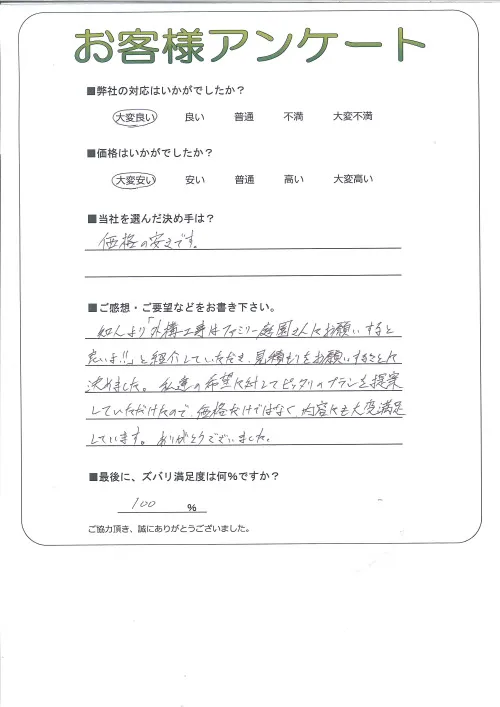 お客様アンケート
■弊社の対応はいかがでしたか？
大変良い 良い 普通 不満 大変不満
■価格はいかがでしたか？
大変安い 安い 普通 高い 大変高い
■当社を選んだ決め手は？
価格の安さです。
■ご感想・ご要望などをお書き下さい。
知人より「外構工事はファミリー庭園さんにお願いすると
良いよ!!」と紹介していただき、見積もりをお願いすることに
決めました。私達の希望に対してピッタリのプランを提案
していただけたので、価格だけではなく、内容にも大変満足
しています。ありがとうございました。
■最後に、ズバリ満足度は何％ですか？
100 %
ご協力頂き、誠にありがとうございました。